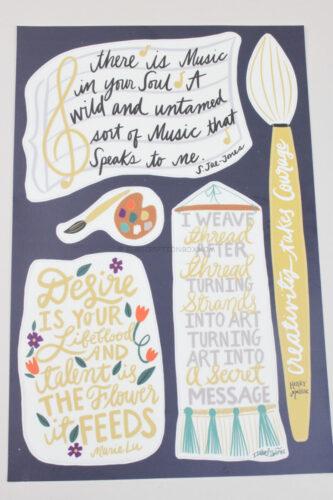 there is Music
in your Soul. A
wild and untamed
sort of Music that
Speaks to me.
S. Jae-Jones
Creativity takes Courage
Henry Matisse
I WEAVE
thread
AFTER
thread
TURNING
Strands
INTO ART
TURNING
ART INTO
a Secret
MESSAGE
Desire
IS YOUR
Lifeblood
AND
talent is
THE FLOWER
it FEEDS
Marie Lu